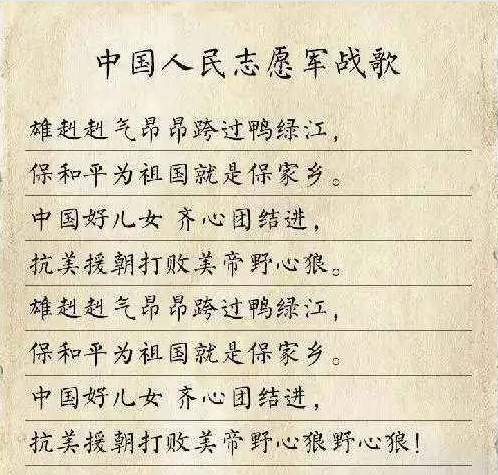 中国人民志愿军战歌
雄赳赳气昂昂跨过鸭绿江，
保和平为祖国就是保家乡。
中国好儿女 齐心团结进，
抗美援朝打败美帝野心狼。
雄赳赳气昂昂跨过鸭绿江，
保和平为祖国就是保家乡。
中国好儿女 齐心团结进，
抗美援朝打败美帝野心狼野心狼！